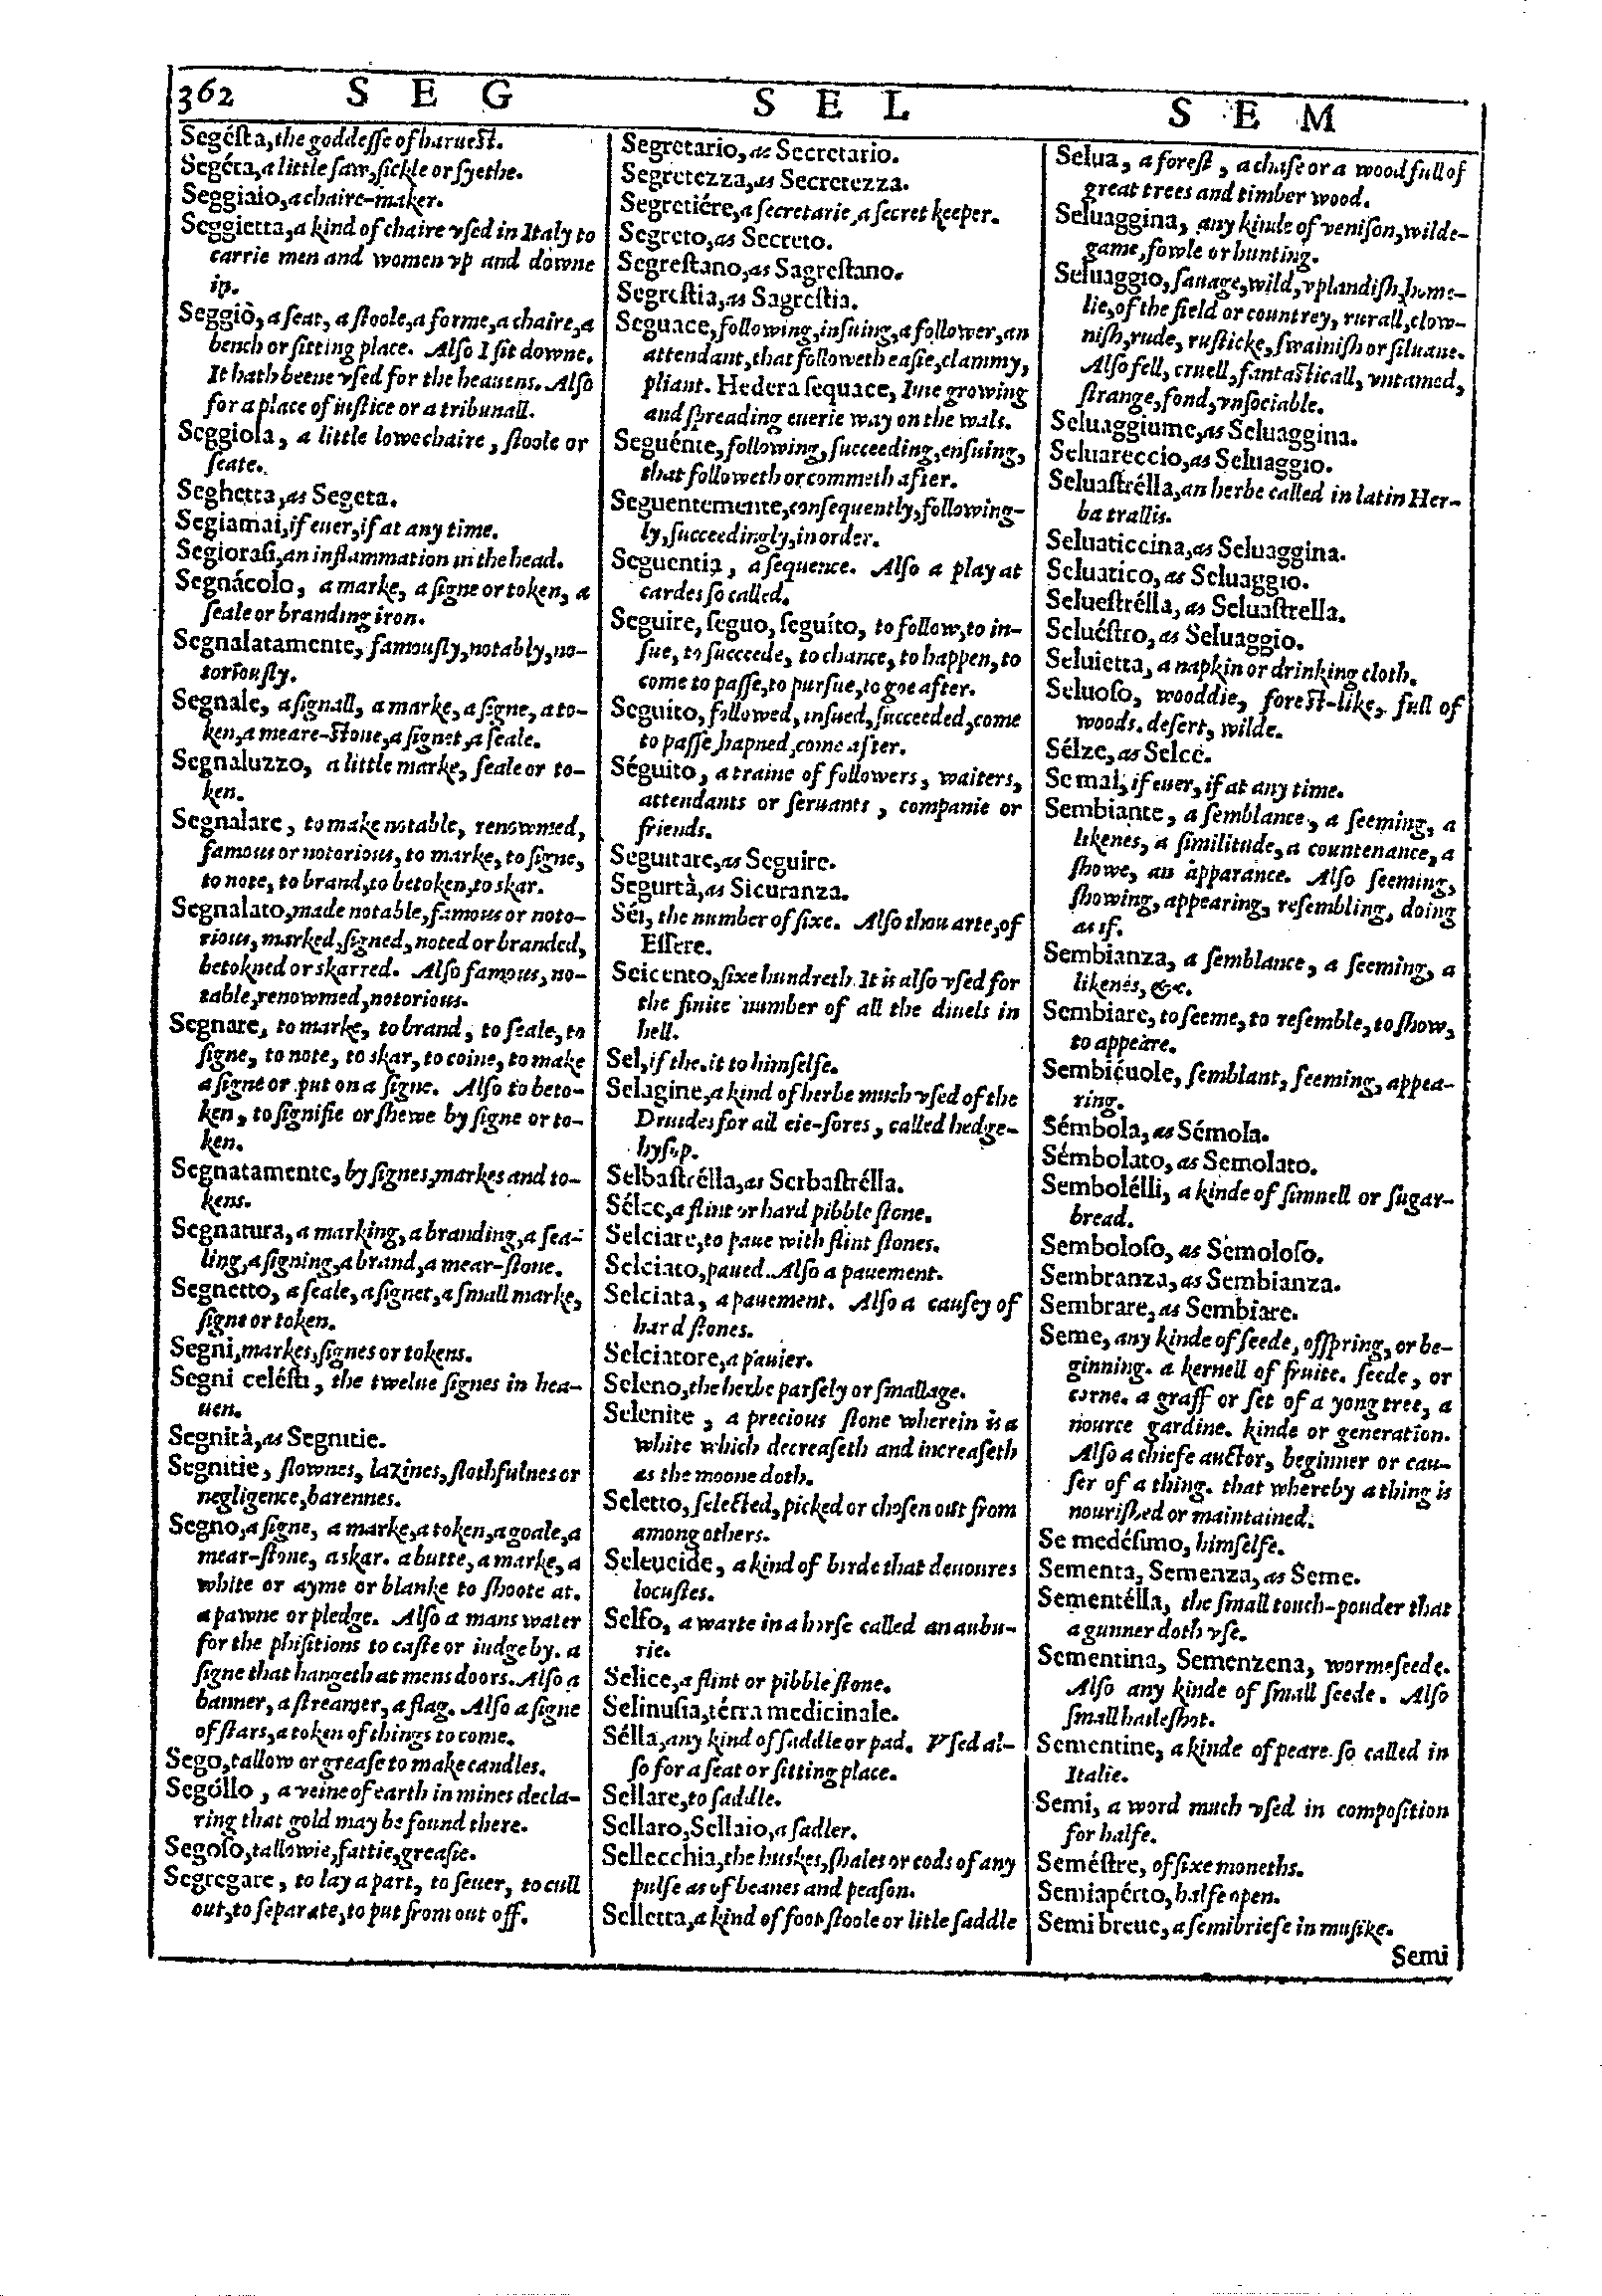 362 SEG SEL SEM
Segésta, the goddesse of haruest.
Segéta, a little saw, sickle or syethe.
Seggiaio, a chaire-maker.
Seggietta, a kind of chaire vsed in Italy to
carrie men and women vp and downe
in.
Seggiò, a seat, a stoole, a forme, a chaire, a
bench or sitting place. Also I sit downe.
It hath beene vsed for the heauens. Also
for a place of iustice or a tribunall.
Seggiola, a little lowe chaire, stoole or
seate.
Seghetta, as Segeta.
Segiamai, if euer, if at any time.
Segiorasi, an inflammation in the head.
Segnácolo, a marke, a signe or token, a
seale or branding iron.
Segnalatamente, famously, notably, no-
toriously.
Segnale, a signall, a marke, a signe, a to-
ken, a meare-stone, a signet, a seale.
Segnaluzzo, a little marke, seale or to-
ken.
Segnalare, to make notable, renowmed,
famous or notorious, to marke, to signe,
to note, to brand, to betoken, to skar.
Segnalato, made notable, famous or noto-
rious, marked, signed, noted or branded,
betokned or skarred. Also famous, no-
table, renowmed, notorious.
Segnare, to marke, to brand, to seale, to
signe, to note, to skar, to coine, to make
a signe or put on a signe. Also to beto-
ken, to signifie or shewe by signe or to-
ken.
Segnatamente, by signes, markes and to-
kens.
Segnatura, a marking, a branding, a sea-
ling, a signing, a brand, a mear-stone.
Segnetto, a seale, a signet, a small marke,
signe or token.
Segni, markes, signes or tokens.
Segni celésti, the twelue signes in hea-
uen.
Segnità, as Segnitie.
Segnitie, slownes, lazines, slothfulnes or
negligence, barennes.
Segno, a signe, a marke, a token, a goale, a
mear-stone, a skar. a butte, a marke, a
white or ayme or blanke to shoote at.
a pawne or pledge. Also a mans water
for the phisitions to caste or iudge by. a
signe that hangeth at mens doors. Also a
banner, a streamer, a flag. Also a signe
of stars, a token of things to come.
Sego, tallow or grease to make candles.
Sególlo, a veine of earth in mines decla-
ring that gold may be found there.
Segoso, tallowie, fattie, greasie.
Segregare, to lay a part, to seuer, to cull
out, to separate, to put from out off.
Segretario, as Secretario.
Segretezza, as Secretezza.
Segretiére, a secretarie, a secret keeper.
Segreto, as Secreto.
Segrestano, as Sagrestano.
Segrestia, as Sagrestia.
Seguace, following, insuing, a follower, an
attendant, that followeth easie, clammy,
pliant. Hedera sequace, Iuie growing
and spreading euerie way on the wals.
Seguénte, following, succeeding, ensuing,
that followeth or commeth after.
Seguentemente, consequently, following-
ly, succeedingly, in order.
Seguentia, a sequence. Also a play at
cardes so called.
Seguire, seguo, seguíto, to follow, to in-
sue, to succeede, to chance, to happen, to
come to passe, to pursue, to goe after.
Seguito, followed, insued, succeeded, come
to passe, hapned, come after.
Séguito, a traine of followers, waiters,
attendants or seruants, companie or
friends.
Seguitare, as Seguire.
Segurtà, as Sicuranza.
Séi, the number of sixe. Also thou arte, of
Essere.
Seicento, sixe hundreth. It is also vsed for
the finite number of all the diuels in
hell.
Sel, if the. it to himselfe.
Selagine, a kind of herbe much vsed of the
Druides for all eie-sores, called hedge-
hysop.
Selbastrélla, as Serbastrélla.
Sélce, a flint or hard pibble stone.
Selciare, to paue with flint stones.
Selciato, paued. Also a pauement.
Selciata, a pauement. Also a causey of
hard stones.
Selciatore, a pauier.
Seleno, the herbe parsely or smallage.
Selenite, a precious stone wherein is a
white which decreaseth and increaseth
as the moone doth.
Seletto, selected, picked or chosen out from
among others.
Seleucide, a kind of birde that deuoures
locustes.
Selfo, a warte in a horse called an aubu-
rie.
Selice, a flint or pibble stone.
Selinusia, térra medicinale.
Sélla, any kind of saddle or pad. Vsed al-
so for a seat or sitting place.
Sellare, to saddle.
Sellaro, Sellaio, a sadler.
Sellecchia, the huskes, shales or cods of any
pulse as of beanes and peason.
Selletta, a kind of foot stoole or litle saddle
Selua, a forest, a chase or a wood full of
great trees and timber wood.
Seluaggina, any kinde of venison, wilde-
game, fowle or hunting.
Seluaggio, sauage, wild, vplandish, home-
lie, of the field or countrey, rurall, clow-
nish, rude, rusticke, swainish or siluane.
Also fell, cruell, fantasticall, vntamed,
strange, fond, vnsociable.
Seluaggiume, as Seluaggina.
Seluareccio, as Seluaggio.
Seluastrélla, an herbe called in latin Her-
ba trallis.
Seluaticcina, as Seluaggina.
Seluatico, as Seluaggio.
Seluestrélla, as Seluastrella.
Seluéstro, as Seluaggio.
Seluietta, a napkin or drinking cloth.
Seluoso, wooddie, forest-like, full of
woods. desert, wilde.
Sélze, as Selce.
Se mai, if euer, if at any time.
Sembiante, a semblance, a seeming, a
likenes, a similitude, a countenance, a
showe, an apparance. Also seeming,
showing, appearing, resembling, doing
as if.
Sembianza, a semblance, a seeming, a
likenes, &c.
Sembiare, to seeme, to resemble, to show,
to appeare.
Sembiéuole, semblant, seeming, appea-
ring.
Sémbola, as Sémola.
Sémbolato, as Semolato.
Sembolélli, a kinde of simnell or sugar-
bread.
Semboloso, as Semoloso.
Sembranza, as Sembianza.
Sembrare, as Sembiare.
Seme, any kinde of seede, offpring, or be-
ginning. a kernell of fruite. seede, or
corne. a graff or set of a yong tree, a
nource gardine. kinde or generation.
Also a chiefe auctor, beginner or cau-
ser of a thing. that whereby a thing is
nourished or maintained.
Se medésimo, himselfe.
Sementa, Semenza, as Seme.
Sementélla, the small touch-pouder that
a gunner doth vse.
Sementina, Semenzena, wormeseede.
Also any kinde of small seede. Also
small haile shot.
Sementine, a kinde of peare so called in
Italie.
Semi, a word much vsed in composition
for halfe.
Seméstre, of sixe moneths.
Semiapérto, halfe open.
Semi breue, a semibriefe in musike.
Semi